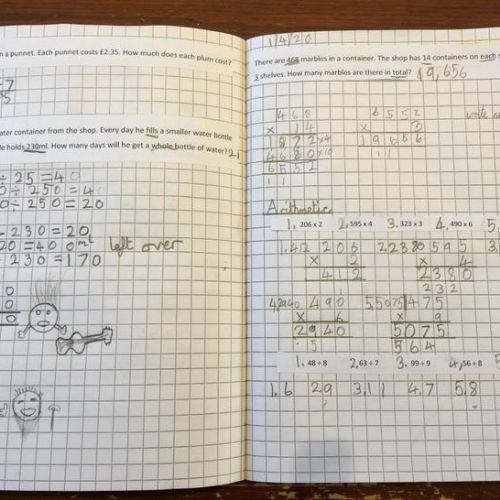 n a punnet. Each punnet costs £2.35. How much does each plum cost?
7
5
ater container from the shop. Every day he fills a smaller water bottle
le holds 230ml. How many days will he get a whole bottle of water? 21
÷ 25 = 40
0 ÷ 250 = 40
0 ÷ 250 = 20
÷ 230 = 20
20 = 400 ml left over
÷ 230 = 170
0
0
0
1/4/20
There are 468 marbles in a container. The shop has 14 containers on each
3 shelves. How many marbles are there in total? 19,656
468
x 14
1872 x4
4680 x10
6552
11
6552
x 3
19656
11
Arithmetic
1, 206 x 2 2, 595 x 4 3, 323 x 3 4, 490 x 6 5
1.412 206 2 2380 595 3
x 2 x 4
412 2380
232
4,2940 490 5,5075 475
x 6 x 9
2940 5075
5 564
1. 48 ÷ 8 2, 63 ÷ 7 3. 99 ÷ 9 4, 56 ÷ 8 5
1.6 2.9 3.11 4.7 5.8